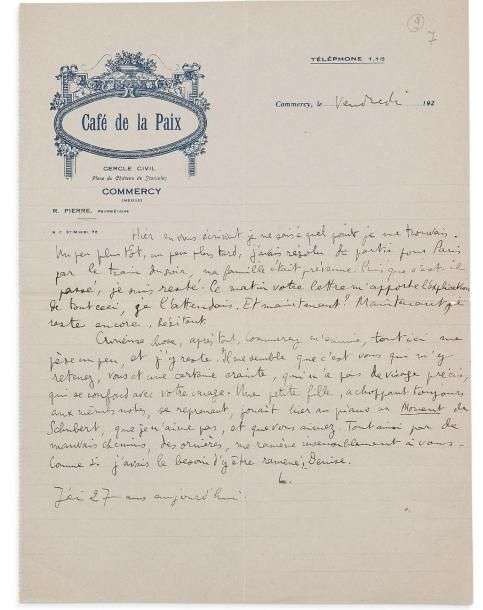 7
TÉLÉPHONE 1.18
Café de la Paix
Commercy, le Vendredi 192
CERCLE CIVIL
Place du Château de Stanislas
COMMERCY
(MEUSE)
R. PIERRE, PROPRIÉTAIRE
Hier en vous écrivant je ne sais à quel point je me trouvais.
Un peu plus tôt, un peu plus tard, j'avais résolu de partir pour Paris
par le train du soir, ma famille était prévenue. Puis que s'est-il
passé, je suis resté. Ce matin votre lettre m'apporte l'explication
de tout ceci, je l'attendais. Et maintenant? Maintenant je
reste encore, hésitant.
Curieuse chose, après tout, Commercy m'ennuie, tout ici me
pèse un peu, et j'y reste. Il me semble que c'est vous qui m'y
retenez, vous et une certaine crainte, qui n'a pas de visage précis,
qui se confond avec votre image. Une petite fille, achoppant toujours
aux mêmes notes, se reprenant, jouait hier au piano ce Moment de
Schubert, que je n'aime pas, et que vous aimez. Tout ainsi par de
mauvais chemins, des ornières, me ramène invinciblement à vous.
Comme si j'avais le besoin d'y être ramené, Denise.
L.
J'ai 27 ans aujourd'hui.